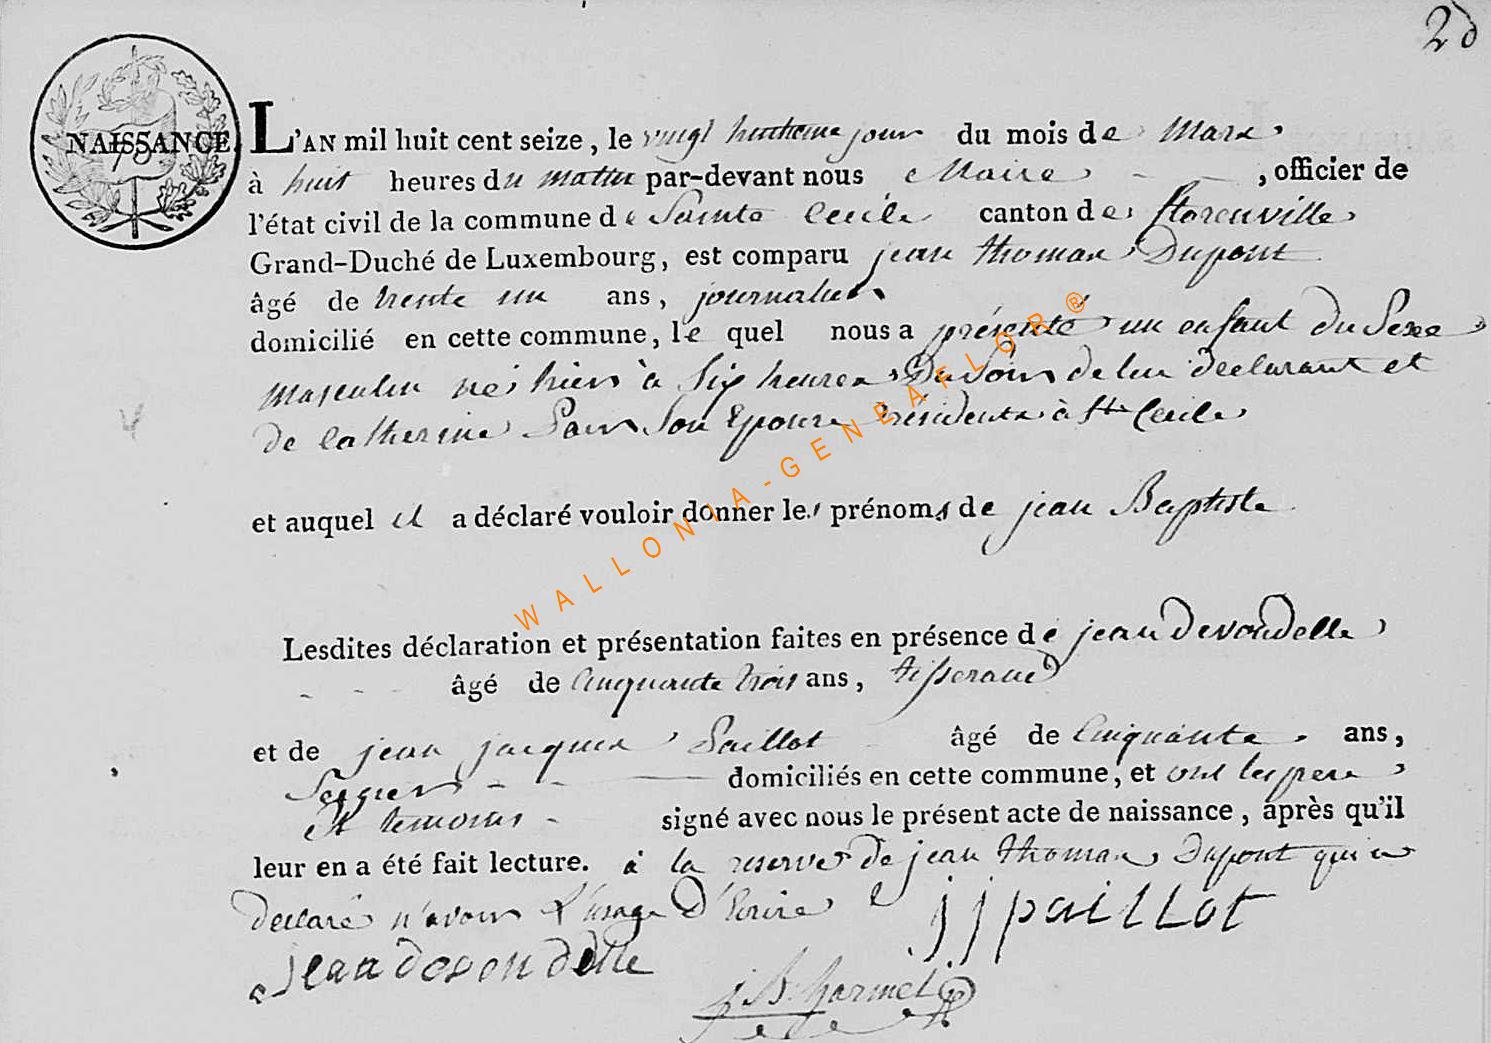 20
NAISSANCE.
75
L'AN mil huit cent seize, le vingt huitieme jour du mois de Mars
à huit heures du matin par-devant nous Maire, officier de
l'état civil de la commune de Sainte Cecile canton de florenville
Grand-Duché de Luxembourg, est comparu jean thomas Dupont
âgé de trente un ans, journalier
domicilié en cette commune, le quel nous a présenté un enfant du Sexe
masculin né hier à Six heures Du Soir de lui déclarant et
de Catherine Son Epouse résidente à Ste Cecile
et auquel il a déclaré vouloir donner les prénoms de jean Baptiste
Lesdites déclaration et présentation faites en présence de jean devondelle
âgé de Cinquante trois ans, tisserand
et de jean jacques Paillot âgé de Cinquante ans,
domiciliés en cette commune, et ont les pere
et temoins signé avec nous le présent acte de naissance, après qu'il
leur en a été fait lecture. à la reserve de jean thomas Dupont qui a
declaré n'avoir l'usage d'Ecrire
jjpaillot
jean devondelle
j B. harmel
WALLONIA-GENEAFLOR®